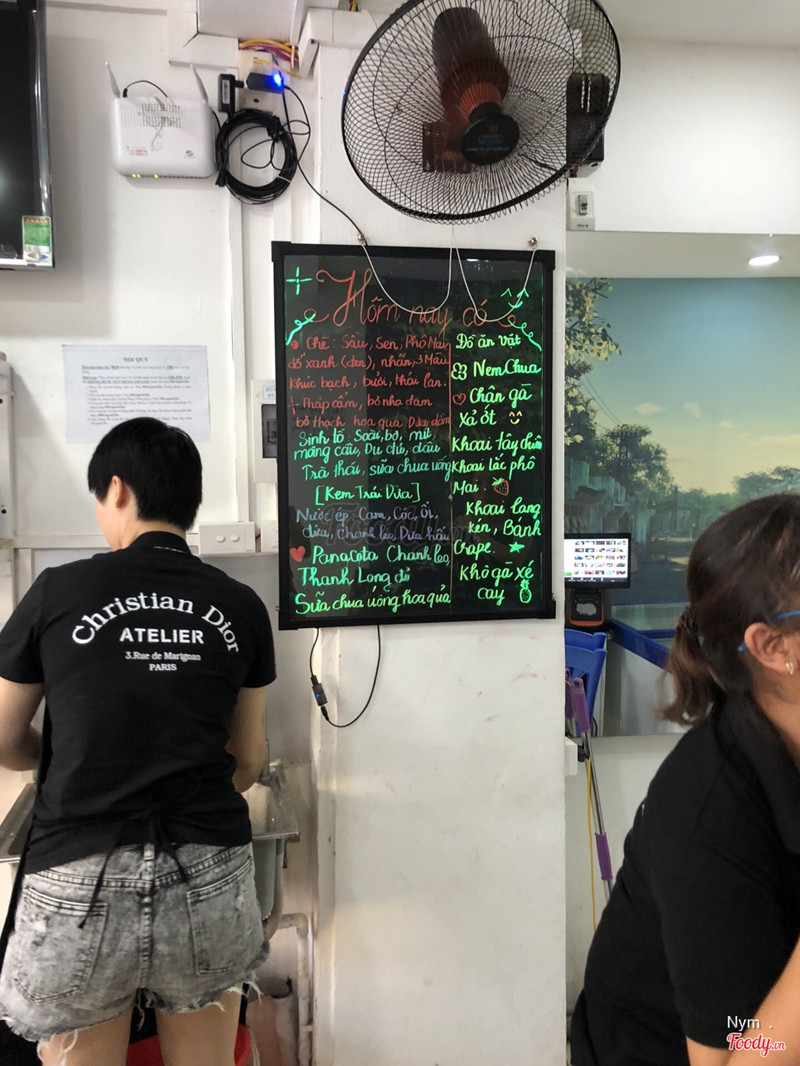 Hôm nay có
Chè: Sầu, Sen, Phô Mai
đỗ xanh (đen), nhãn, 3 Màu
Khúc bạch, bưởi, thái lan.
thập cẩm, bơ nha đam
bơ thạch hoa quả Dừa dầm
Sinh tố Soài, bơ, mít
mãng cầu, Đu đủ, dâu
Trà thái, sữa chua uống
[Kem Trái Dừa]
Nước ép: Cam, Cóc, Ổi,
dứa, Chanh leo, Dưa hấu
Panacota Chanh leo,
Thanh Long đỏ
Sữa chua uống hoa quả
Đồ ăn vặt
Nem Chua
Chân gà
xả ớt
Khoai tây chiên
Khoai lắc phô
Mai.
Khoai lang
kén, Bánh
Chape.
Khô gà xé
cay
NỘI QUY
Christian Dior
ATELIER
3.Rue de Marignan
PARIS
Nym .
Foody.vn